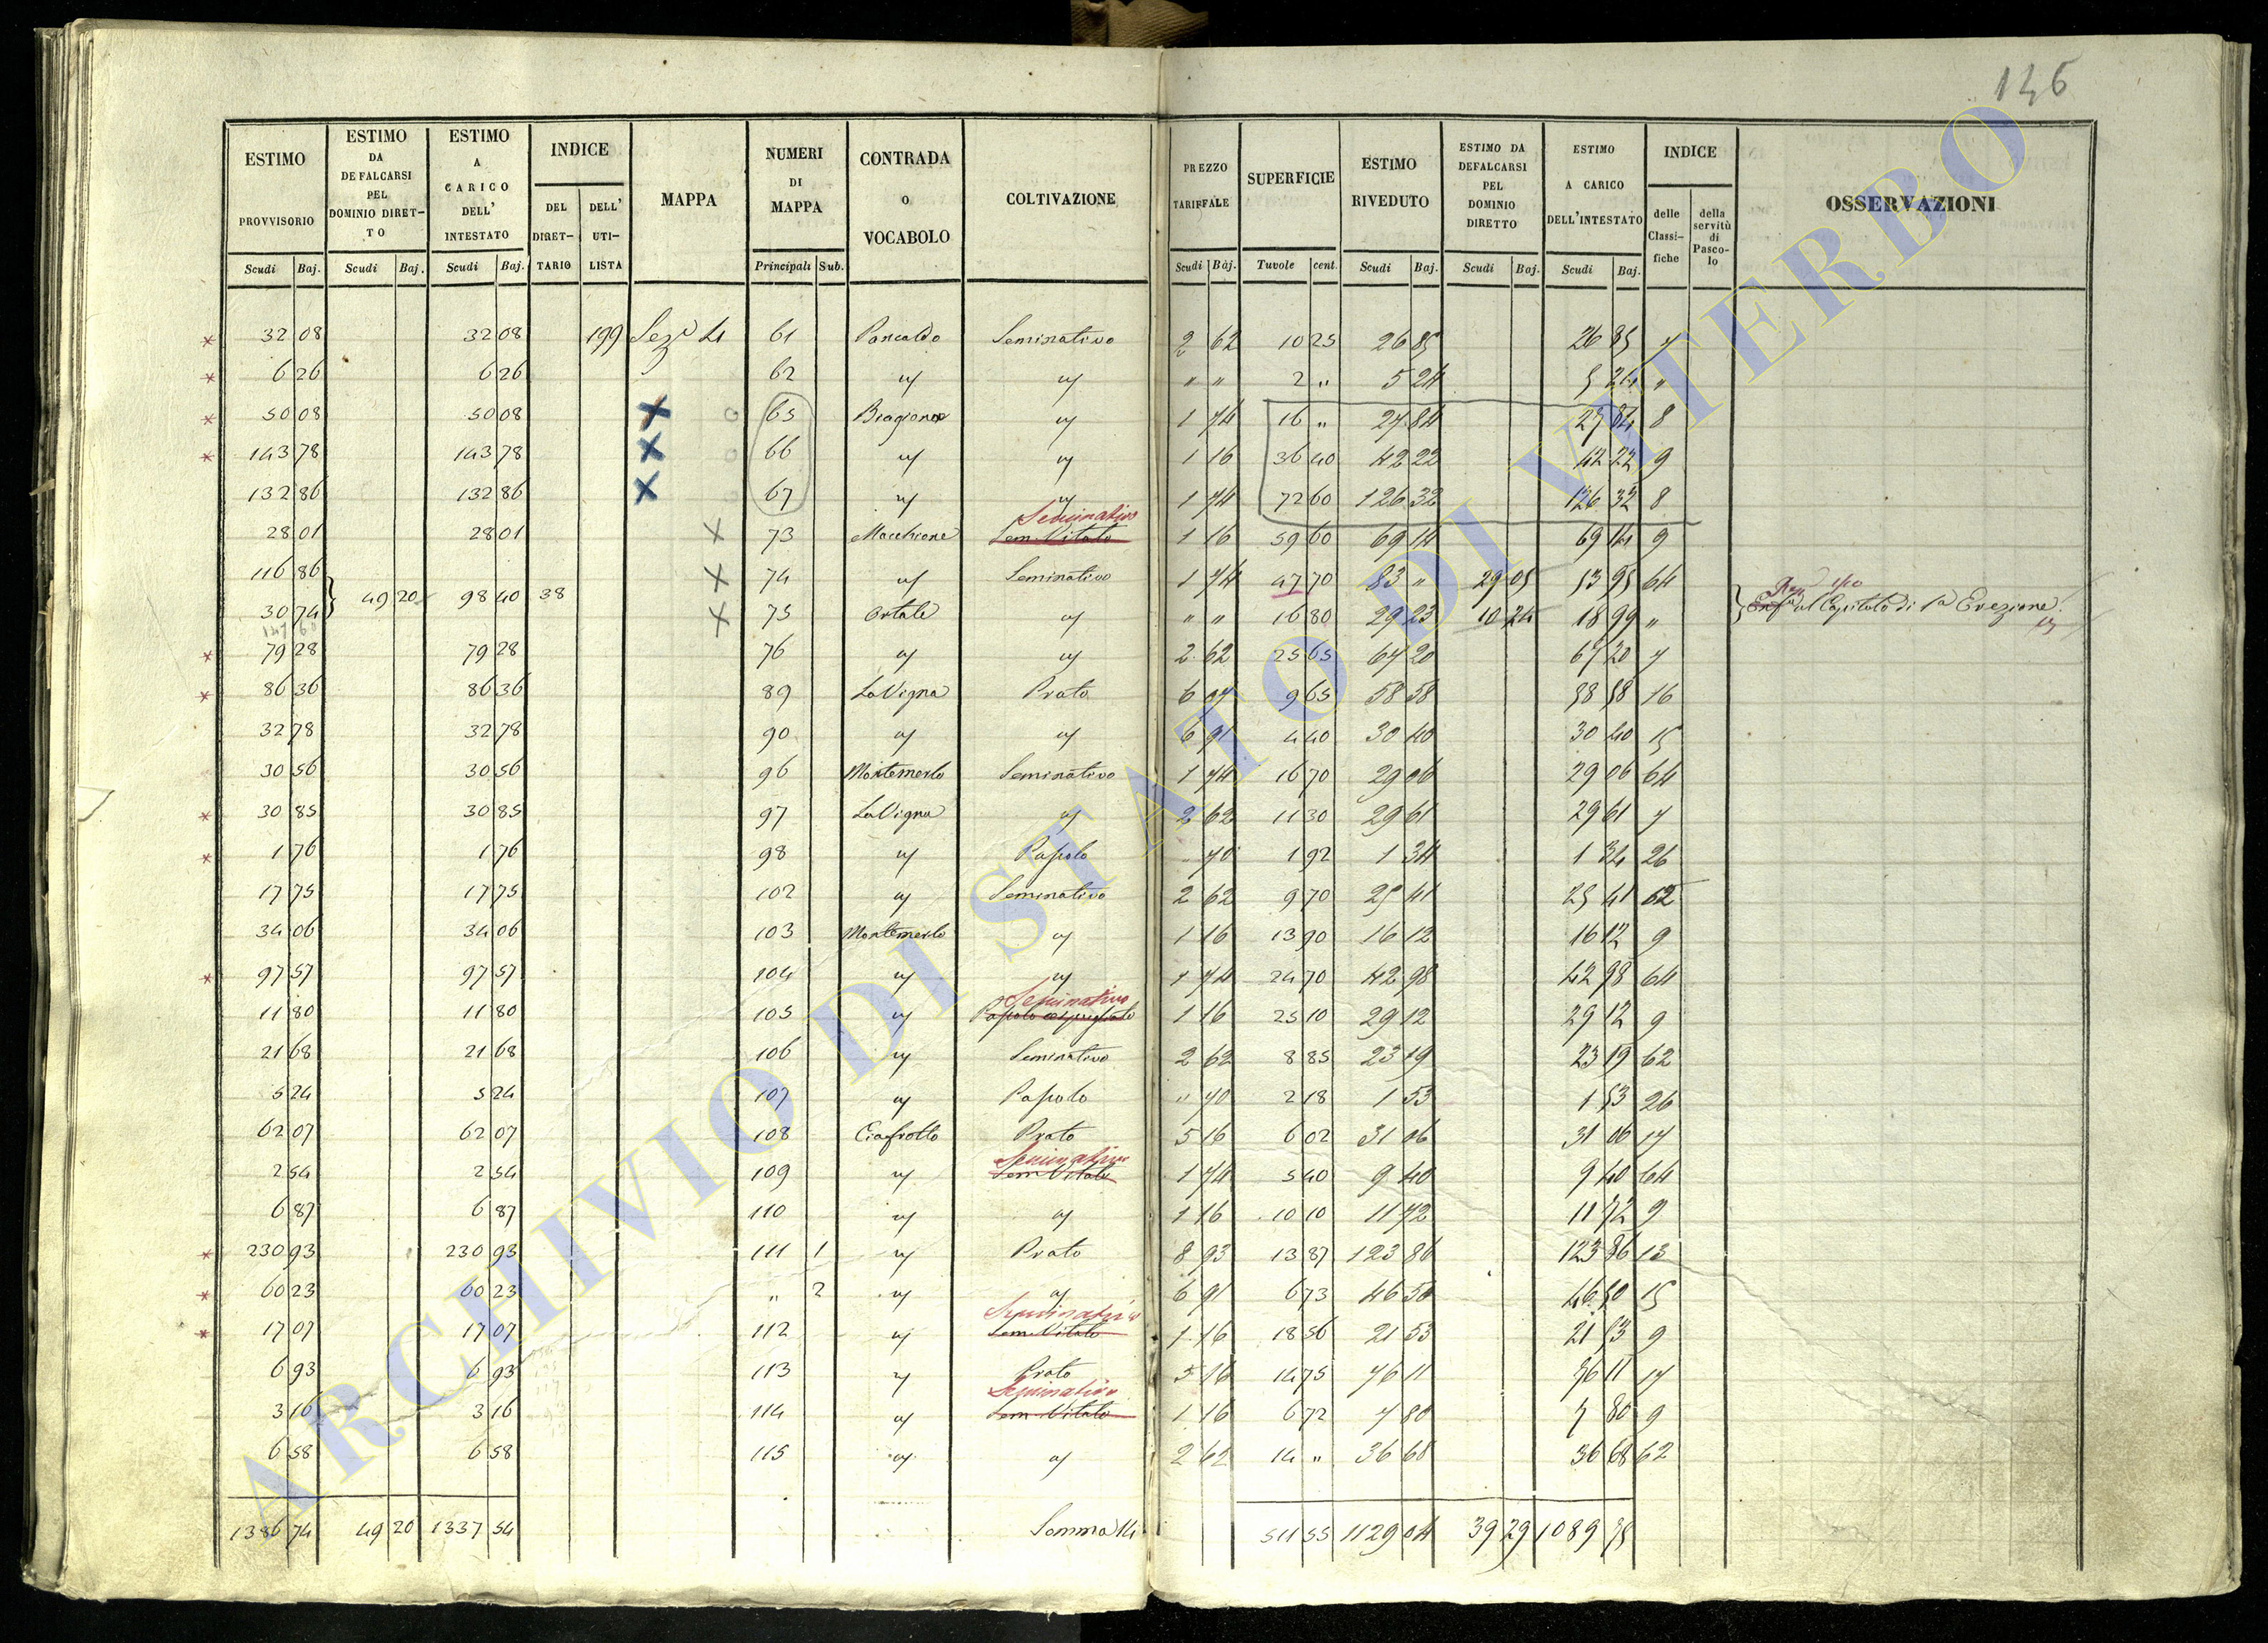 146
ESTIMO PROVVISORIO | ESTIMO DA DEFALCARSI PEL DOMINIO DIRETTO | ESTIMO A CARICO DELL' INTESTATO | INDICE DEL DIRETTARIO | DELL' UTILISTA | MAPPA | NUMERI DI MAPPA | CONTRADA O VOCABOLO | COLTIVAZIONE | PREZZO TARIFFALE | SUPERFICIE | ESTIMO RIVEDUTO | ESTIMO DA DEFALCARSI PEL DOMINIO DIRETTO | ESTIMO A CARICO DELL'INTESTATO | INDICE delle Classifiche | della servitù di Pascolo | OSSERVAZIONI
Scudi Baj. | Scudi Baj. | Scudi Baj. | Principali Sub. | Scudi Baj. | Tavole cent. | Scudi Baj. | Scudi Baj. | Scudi Baj.
32 08 | 32 08 | 199 | 61 | Seminativo | 2 62 | 10 25 | 26 85 | 26 85 | 7
6 26 | 6 26 | 62 | " | " | " " | 2 " | 5 24 | 5 24 | "
50 08 | 50 08 | 65 | " | 1 74 | 16 " | 27 84 | 27 84 | 8
143 78 | 143 78 | 66 | " | " | 1 16 | 36 40 | 42 22 | 42 22 | 9
132 86 | 132 86 | 67 | " | " | 1 74 | 72 60 | 126 32 | 126 32 | 8
28 01 | 28 01 | 73 | Macchione | Sem. Vitato Seminativo | 1 16 | 59 60 | 69 14 | 69 14 | 9
116 86 | 49 20 | 98 40 | 38 | 74 | " | Seminativo | 1 74 | 47 70 | 83 " | 29 05 | 53 95 | 64
30 74 | 75 | Ortale | " | " " | 16 80 | 29 23 | 10 24 | 18 99 | " | al Capitolo di Erezione
79 28 | 79 28 | 76 | " | " | 2 62 | 25 65 | 67 20 | 67 20 | 7
86 36 | 86 36 | 89 | La Vigna | Prato | 6 07 | 9 65 | 58 58 | 58 58 | 16
32 78 | 32 78 | 90 | " | " | 6 91 | 4 40 | 30 40 | 30 40 | 15
30 56 | 30 56 | 96 | Montemerlo | Seminativo | 1 74 | 16 70 | 29 06 | 29 06 | 64
30 85 | 30 85 | 97 | La Vigna | " | 2 62 | 11 30 | 29 61 | 29 61 | 7
1 76 | 1 76 | 98 | " | Pascolo | " 70 | 1 92 | 1 34 | 1 34 | 26
17 75 | 17 75 | 102 | " | Seminativo | 2 62 | 9 70 | 25 41 | 25 41 | 62
34 06 | 34 06 | 103 | Montemerlo | " | 1 16 | 13 90 | 16 12 | 16 12 | 9
97 57 | 97 57 | 104 | " | " | 1 74 | 24 70 | 42 98 | 42 98 | 64
11 80 | 11 80 | 105 | " | Pascolo cespugliato Seminativo | 1 16 | 25 10 | 29 12 | 29 12 | 9
21 68 | 21 68 | 106 | " | Seminativo | 2 62 | 8 85 | 23 19 | 23 19 | 62
5 24 | 5 24 | 107 | " | Pascolo | " 70 | 2 18 | 1 53 | 1 53 | 26
62 07 | 62 07 | 108 | Prato | 5 16 | 6 02 | 31 06 | 31 06 | 17
2 54 | 2 54 | 109 | " | Sem. Vitato Seminativo | 1 74 | 5 40 | 9 40 | 9 40 | 64
6 87 | 6 87 | 110 | " | " | 1 16 | 10 10 | 11 72 | 11 72 | 9
230 93 | 230 93 | 111 1 | " | Prato | 8 93 | 13 87 | 123 86 | 123 86 | 13
60 23 | 60 23 | " 2 | " | " | 6 91 | 6 73 | 46 50 | 46 50 | 15
17 07 | 17 07 | 112 | " | Sem. Vitato Seminativo | 1 16 | 18 56 | 21 53 | 21 53 | 9
6 93 | 6 93 | 113 | " | Prato | 5 16 | 14 75 | 76 11 | 76 11 | 17
3 16 | 3 16 | 114 | " | Sem. Vitato Seminativo | 1 16 | 6 72 | 7 80 | 7 80 | 9
6 58 | 6 58 | 115 | " | " | 2 62 | 14 " | 36 68 | 36 68 | 62
1386 74 | 49 20 | 1337 54 | Somma | 511 55 | 1129 04 | 39 29 | 1089 75
ARCHIVIO DI STATO DI VITERBO